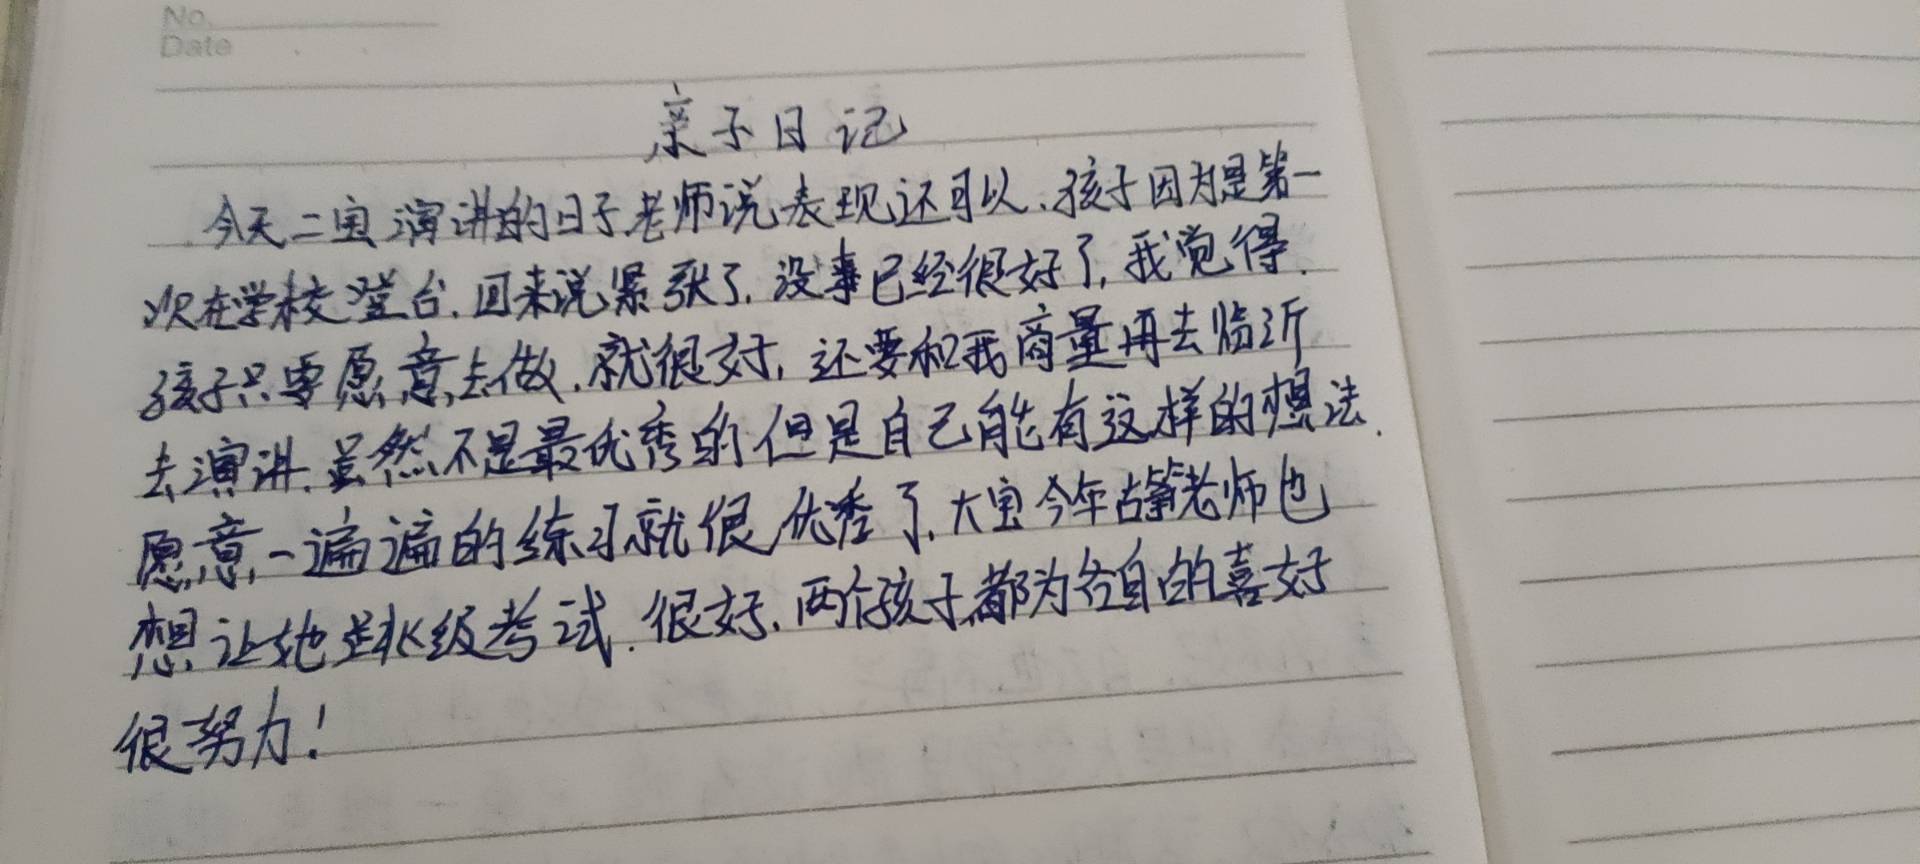 No.
Date
亲子日记
今天二宝演讲的日子,老师说表现还可以,孩子因为是第一
次在学校登台,回来说紧张了,没事已经很好了,我觉得,
孩子只要愿意去做,就很好,还要和我商量再去临沂
去演讲,虽然不是最优秀的但是自己能有这样的想法,
愿意一遍遍的练习就很优秀了,大宝今年古筝老师也
想让她 级考试,很好,两个孩子都为各自的喜好
很努力!